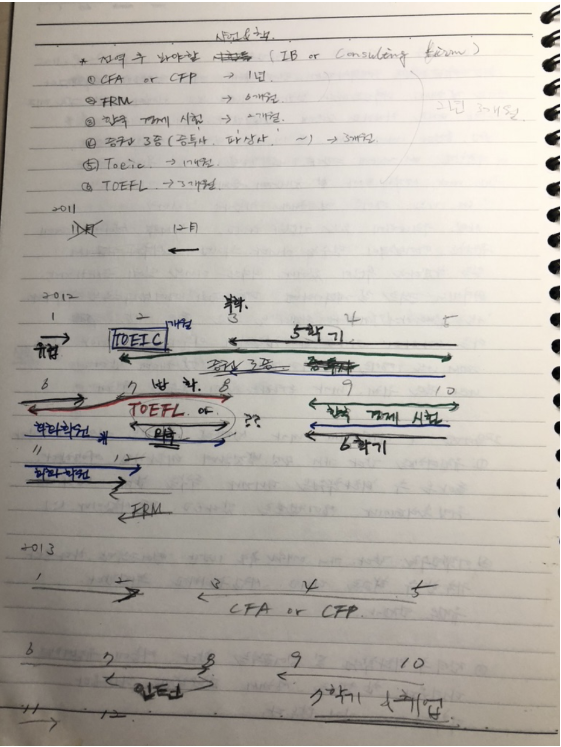 * 전역 후 봐야할 (IB or Consulting Firm)
① CFA or CFP → 1년
② FRM → 6개월
③ 한국 경제 시험 → 2개월
④ 증권 3종 (증투사. 파상사. ~) → 3개월
⑤ Toeic → 1개월
⑥ TOEFL → 3개월
2년 3개월
2011
11月 12月
2012
1 2 3 4 5
TOEIC 1개월 5학기
증권 3종 증투사
6 7 방학. 8 9 10
TOEFL ?? 한국 경제 시험
6학기
11 12
FRM
2013
1 2 3 4 5
CFA or CFP.
6 7 8 9 10
TOEFL 7학기 & 취업
11 12